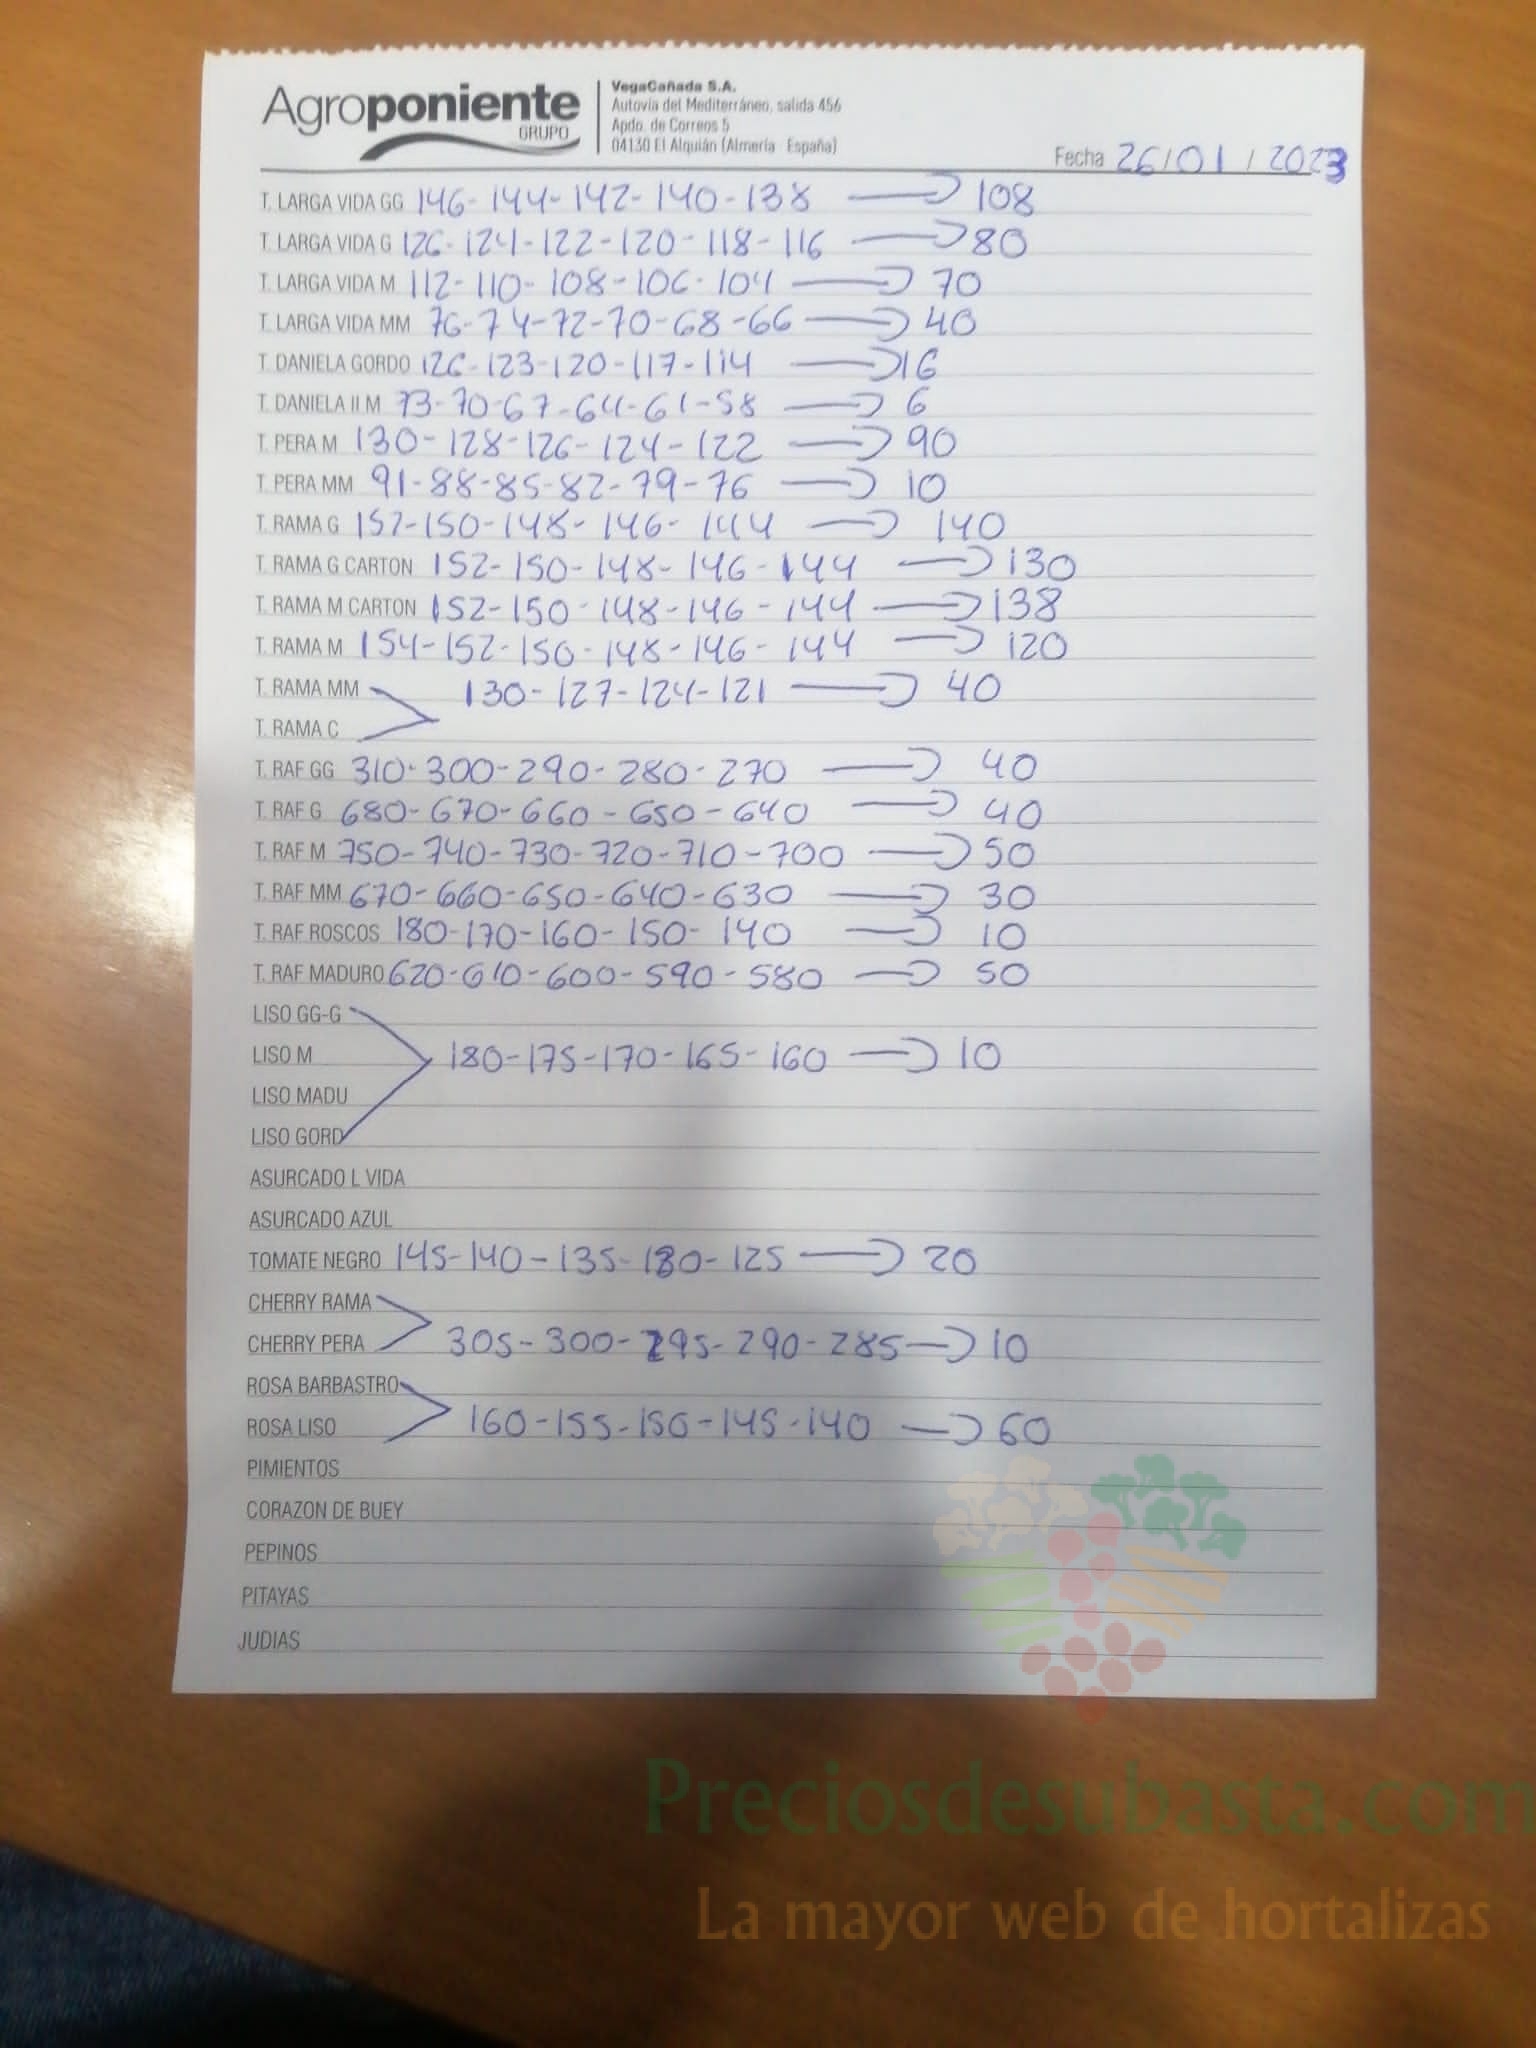 Agroponiente
GRUPO
VegaCañada S.A.
Autovía del Mediterráneo, salida 456
Apdo. de Correos 5
04130 El Alquián (Almería - España)
Fecha 26/01/2023
T. LARGA VIDA GG 146-144-142-140-138 → 108
T. LARGA VIDA G 126-124-122-120-118-116 → 80
T. LARGA VIDA M 112-110-108-106-104 → 70
T. LARGA VIDA MM 76-74-72-70-68-66 → 40
T. DANIELA GORDO 126-123-120-117-114 → 16
T. DANIELA II M 73-70-67-64-61-58 → 6
T. PERA M 130-128-126-124-122 → 90
T. PERA MM 91-88-85-82-79-76 → 10
T. RAMA G 152-150-148-146-144 → 140
T. RAMA G CARTON 152-150-148-146-144 → 130
T. RAMA M CARTON 152-150-148-146-144 → 138
T. RAMA M 154-152-150-148-146-144 → 120
T. RAMA MM 130-127-124-121 → 40
T. RAMA C
T. RAF GG 310-300-290-280-270 → 40
T. RAF G 680-670-660-650-640 → 40
T. RAF M 750-740-730-720-710-700 → 50
T. RAF MM 670-660-650-640-630 → 30
T. RAF ROSCOS 180-170-160-150-140 → 10
T. RAF MADURO 620-610-600-590-580 → 50
LISO GG-G
LISO M 180-175-170-165-160 → 10
LISO MADU
LISO GORD
ASURCADO L VIDA
ASURCADO AZUL
TOMATE NEGRO 145-140-135-130-125 → 20
CHERRY RAMA
CHERRY PERA 305-300-295-290-285 → 10
ROSA BARBASTRO
ROSA LISO 160-155-150-145-140 → 60
PIMIENTOS
CORAZON DE BUEY
PEPINOS
PITAYAS
JUDIAS
Preciosdesubasta.com
La mayor web de hortalizas